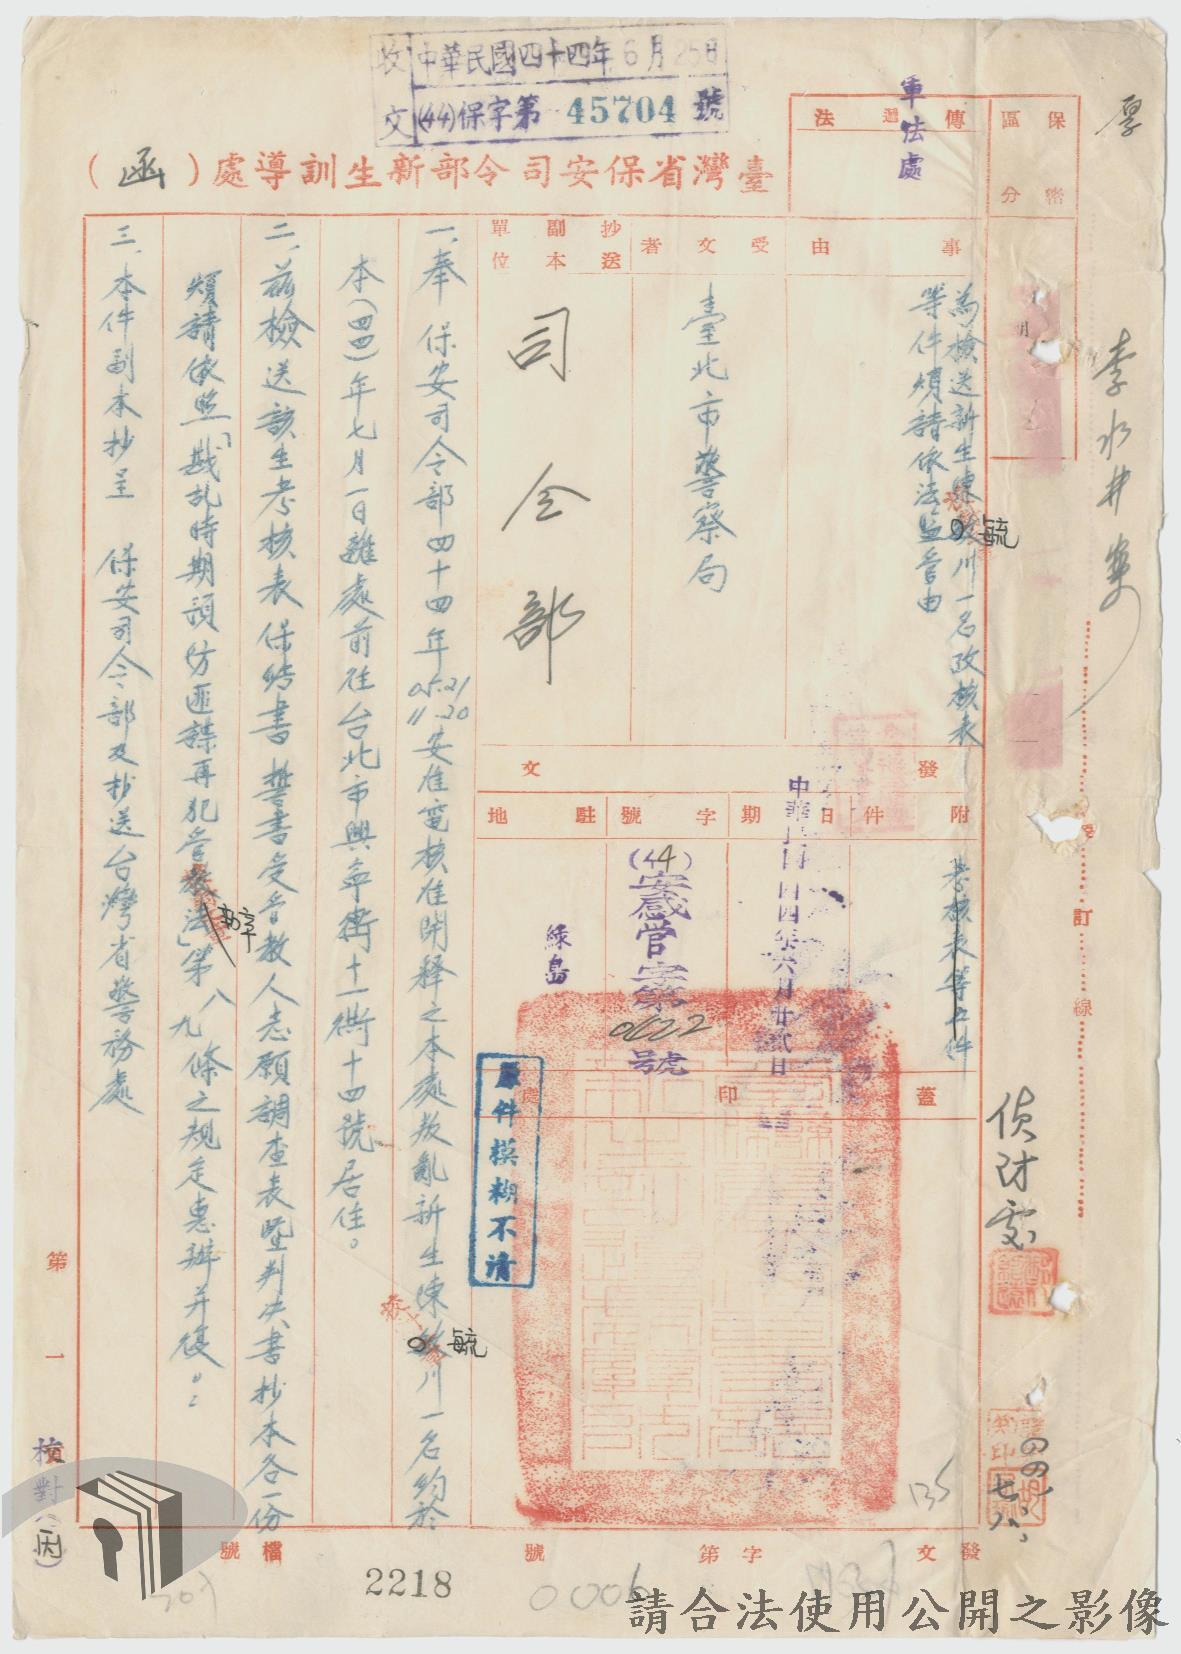 收文 中華民國四十四年6月25日
(44)保字第 45704 號
臺灣省保安司令部新生訓導處(函)
厚
李水井案
保密區分
傳遞法
軍法處
事由
為檢送新生陳毓川一名考核表
等件煩請依法監管由
受文者
臺北市警察局
抄送副本單位
司令部
發文
附件
考核表等五件
日期
中華民國四四年六月廿貳日
字號
(44)安感管安第0622號
駐地
綠島
蓋印處
原件模糊不清
一、奉 保安司令部四十四年05.21 11.20安准電核准開釋之本處叛亂新生陳毓川一名約於
本(四四)年七月一日離處前往台北市興寧街十一衖十四號居住。
二、茲檢送該生考核表保結書誓書受管教人志願調查表暨判決書抄本各一份
煩請依照「戡亂時期預防匪諜再犯管教辦法」第八九條之規定惠辦并復。
三、本件副本抄呈 保安司令部及抄送台灣省警務處
訂線
偵防處
135
發文字第號
檔號
2218
0006
第一頁
校對
請合法使用公開之影像